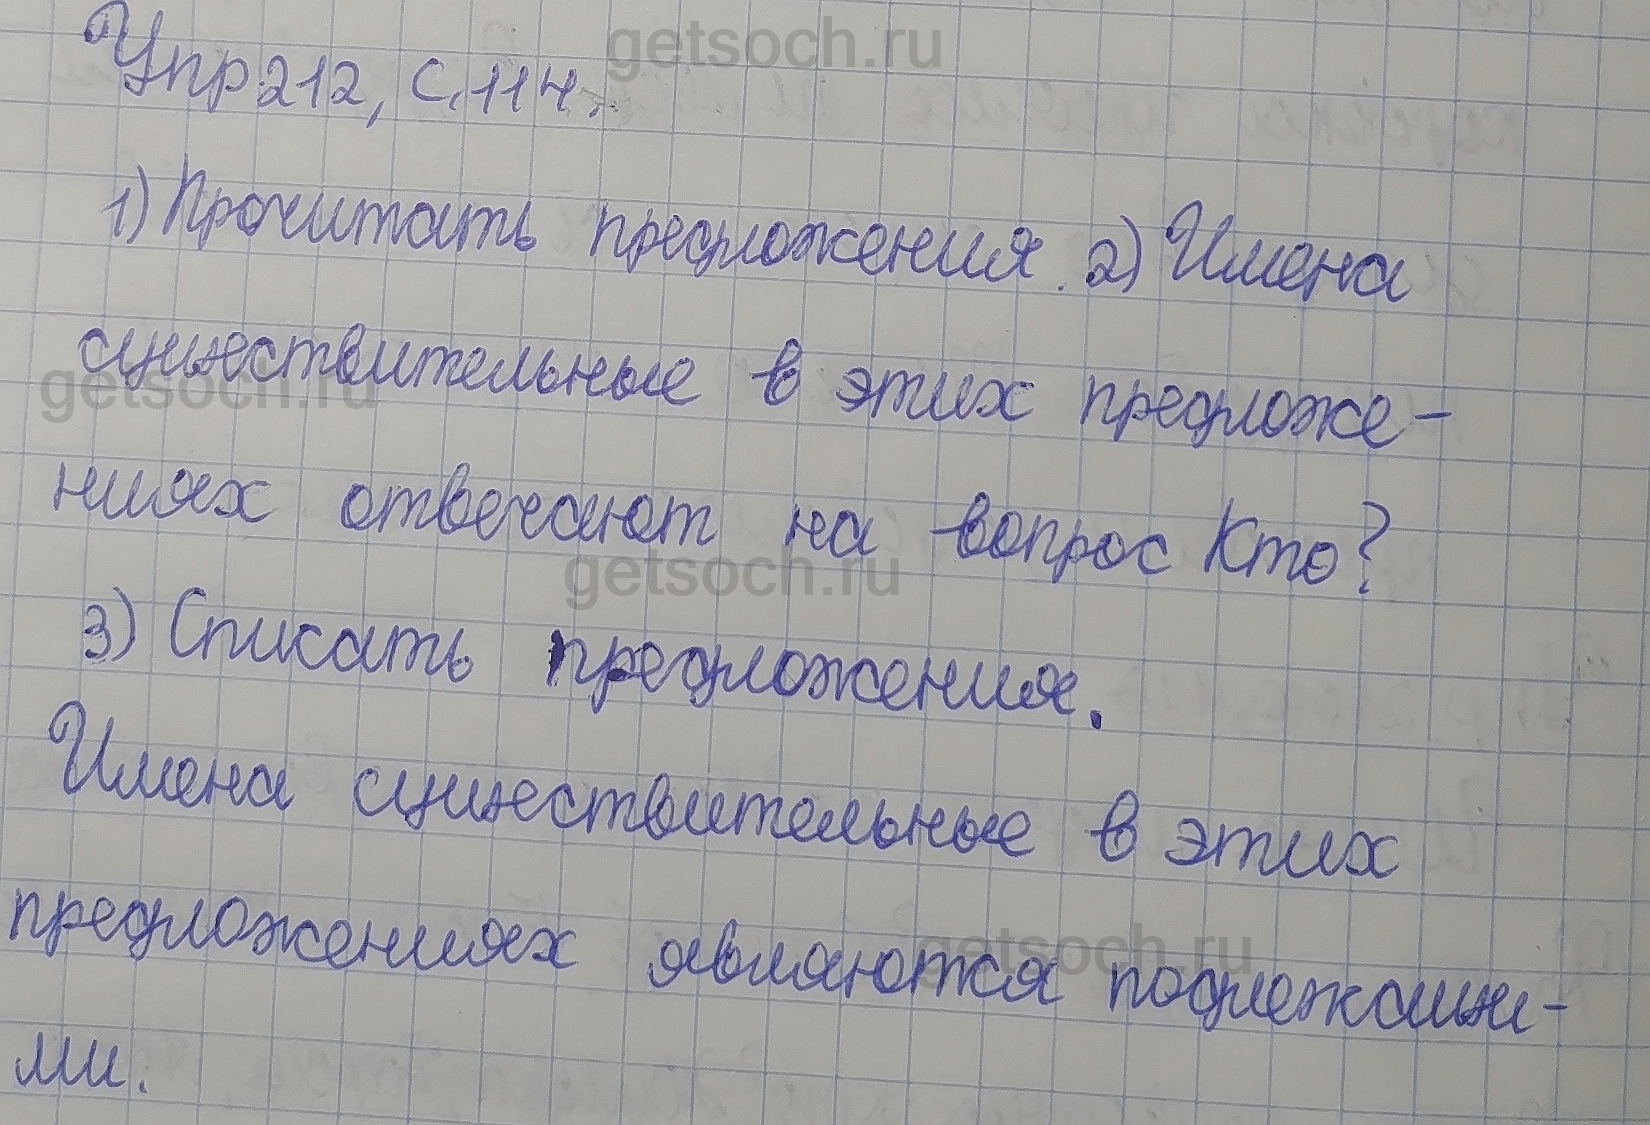 getsoch.ru
Упр 212, с. 114.
1) Прочитать предложения. 2) Имена
существительные в этих предложе-
getsoch.ru
ниях отвечают на вопрос Кто?
getsoch.ru
3) Списать предложения.
Имена существительные в этих
предложениях являются подлежащи-
getsoch.ru
ми.